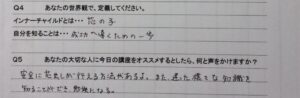 Q4　あなたの世界観で、定義してください。
インナーチャイルドとは･･･ 芯の子
自分を知ることは･･･ 成功へ導くための一歩
Q5　あなたの大切な人に今日の講座をオススメするとしたら、何と声をかけますか？
安全に 花見しが 行える方法があるよ。また、違った様々な知識を
知ることができ、勉強になる。